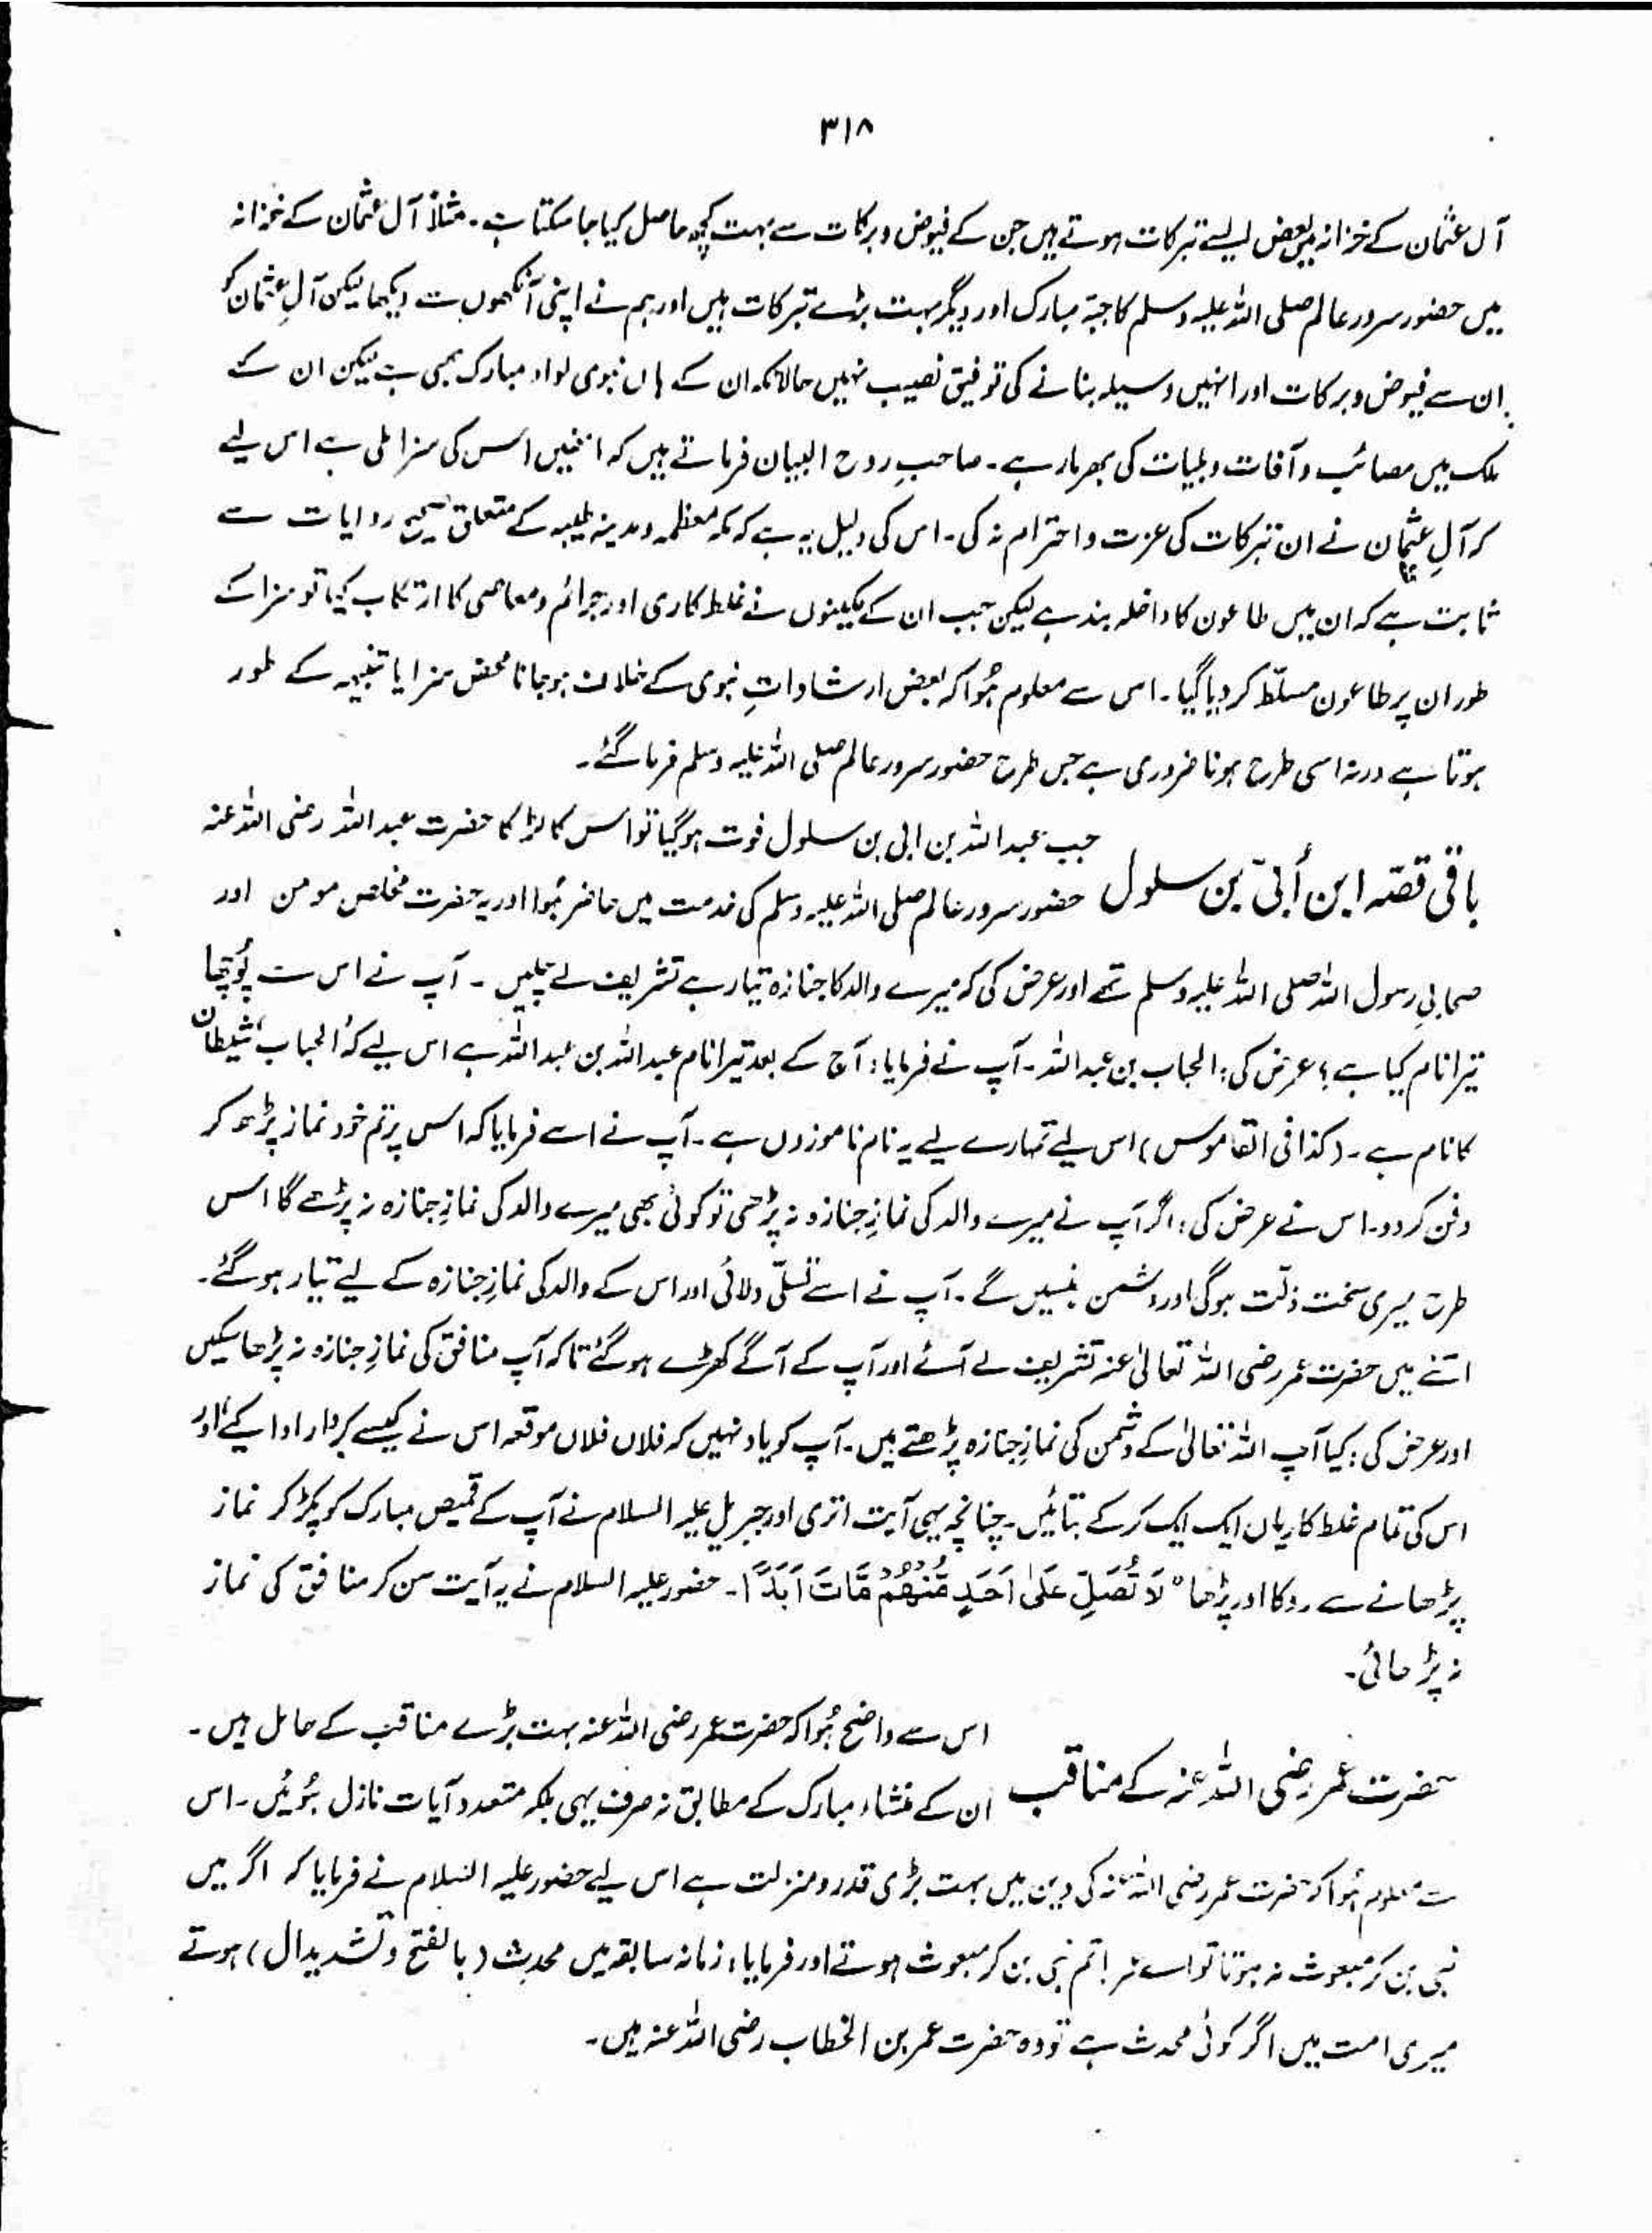 ۳۱۸
آل عثمان کے خزانہ میں بعض ایسے تبرکات ہوتے ہیں جن کے فیوض و برکات سے بہت کچھ حاصل کیا جا سکتا ہے۔ مثلاً آل عثمان کے خزانہ
میں حضور سرور عالم صلی اللہ علیہ وسلم کا جبہ مبارک اور دیگر بہت بڑے تبرکات ہیں اور ہم نے اپنی آنکھوں سے دیکھا لیکن آلِ عثمان کو
ان سے فیوض و برکات اور انہیں وسیلہ بنانے کی توفیق نصیب نہیں حالانکہ ان کے ہاں نبوی لواء مبارک بھی ہے لیکن ان کے
ملک میں مصائب و آفات و بلیات کی بھرمار ہے۔ صاحبِ روح البیان فرماتے ہیں کہ انھیں اس کی سزا ملی ہے اس لیے
کہ آلِ عثمان نے ان تبرکات کی عزت و احترام نہ کی۔ اس کی دلیل یہ ہے کہ مکہ معظمہ و مدینہ طیبہ کے متعلق صحیح روایات سے
ثابت ہے کہ ان میں طاعون کا داخلہ بند ہے لیکن جب ان کے مکینوں نے غلط کاری اور جرائم و معاصی کا ارتکاب کیا تو سزا کے
طور ان پر طاعون مسلّط کر دیا گیا۔ اس سے معلوم ہُوا کہ بعض ارشاداتِ نبوی کے خلاف ہو جانا محض سزا یا تنبیہ کے طور
ہوتا ہے ورنہ اسی طرح ہونا ضروری ہے جس طرح حضور سرور عالم صلی اللہ علیہ وسلم فرما گئے۔
باقی قصّہ ابن اُبیّ بن سلول
جب عبد اللہ بن ابی بن سلول فوت ہو گیا تو اس کا لڑکا حضرت عبد اللہ رضی اللہ عنہ
حضور سرور عالم صلی اللہ علیہ وسلم کی خدمت میں حاضر ہُوا اور یہ حضرت مخلص مومن اور
صحابیِ رسول اللہ صلی اللہ علیہ وسلم تھے اور عرض کی کہ میرے والد کا جنازہ تیار ہے تشریف لے چلیں۔ آپ نے اس سے پُوچھا
تیرا نام کیا ہے؟ عرض کی: الحباب بن عبد اللہ۔ آپ نے فرمایا: آج کے بعد تیرا نام عبد اللہ بن عبد اللہ ہے اس لیے کہ "الحباب" شیطان
کا نام ہے۔ (کذا فی القاموس) اس لیے تمہارے لیے یہ نام ناموزوں ہے۔ آپ نے اسے فرمایا کہ اس پر تم خود نماز پڑھ کر
دفن کر دو۔ اس نے عرض کی: اگر آپ نے میرے والد کی نمازِ جنازہ نہ پڑھی تو کوئی بھی میرے والد کی نمازِ جنازہ نہ پڑھے گا اس
طرح میری سخت ذلّت ہوگی اور دشمن ہنسیں گے۔ آپ نے اسے تسلّی دلائی اور اس کے والد کی نمازِ جنازہ کے لیے تیار ہو گئے۔
اتنے میں حضرت عمر رضی اللہ تعالیٰ عنہ تشریف لے آئے اور آپ کے آگے کھڑے ہو گئے تاکہ آپ منافق کی نمازِ جنازہ نہ پڑھا سکیں
اور عرض کی: کیا آپ اللہ تعالیٰ کے دشمن کی نمازِ جنازہ پڑھتے ہیں۔ آپ کو یاد نہیں کہ فلاں فلاں موقعہ اس نے کیسے کردار ادا کیے اور
اس کی تمام غلط کاریاں ایک ایک کر کے بتائیں۔ چنانچہ یہی آیت اتری اور جبریل علیہ السلام نے آپ کے قمیص مبارک کو پکڑ کر نماز
پڑھانے سے روکا اور پڑھا "لَا تُصَلِّ عَلٰى اَحَدٍ مِّنْهُمْ مَّاتَ اَبَدًا۔ حضور علیہ السلام نے یہ آیت سن کر منافق کی نماز
نہ پڑھائی۔
حضرت عمر رضی اللہ عنہ کے مناقب
اس سے واضح ہُوا کہ حضرت عمر رضی اللہ عنہ بہت بڑے مناقب کے حامل ہیں۔
ان کے منشاء مبارک کے مطابق نہ صرف یہی بلکہ متعدد آیات نازل ہُوئیں۔ اس
سے معلوم ہُوا کہ حضرت عمر رضی اللہ عنہ کی دین میں بہت بڑی قدر و منزلت ہے اس لیے حضور علیہ السلام نے فرمایا کہ اگر میں
نبی بن کر مبعوث نہ ہوتا تو اے عمر! تم نبی بن کر مبعوث ہوتے اور فرمایا: زمانہ سابقہ میں محدث (بالفتح و تشدید دال) ہوتے
میری امت میں اگر کوئی محدث ہے تو وہ حضرت عمر بن الخطاب رضی اللہ عنہ ہیں۔